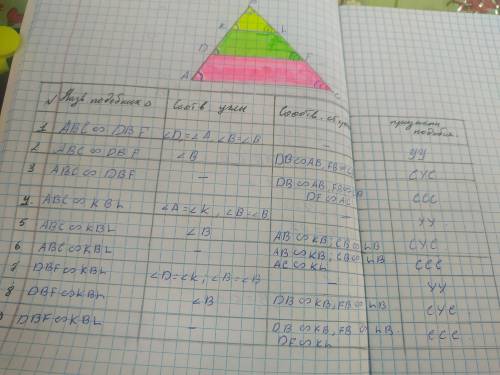 B
K L
D F
A C
Соотв углы
1 ABC ∽ DBF ∠D=∠A, ∠B=∠B – УУ
2 ABC ∽ DBF ∠B DB∽AB, FB∽ СУС
3 ABC ∽ DBF – DB∽AB, DF∽AC ССС
4. ABC ∽ KBL ∠A=∠K, ∠B=∠B – УУ
5 ABC ∽ KBL ∠B AB∽KB, CB∽LB СУС
6 ABC ∽ KBL – AB∽KB, CB∽LB ССС
AC∽KL
7 DBF∽KBL ∠D=∠K; ∠B=∠B – УУ
8 DBF∽KBL ∠B DB∽KB, FB∽LB СУС
9 DBF∽KBL – DB∽KB, FB∽LB ССС
DF∽KL